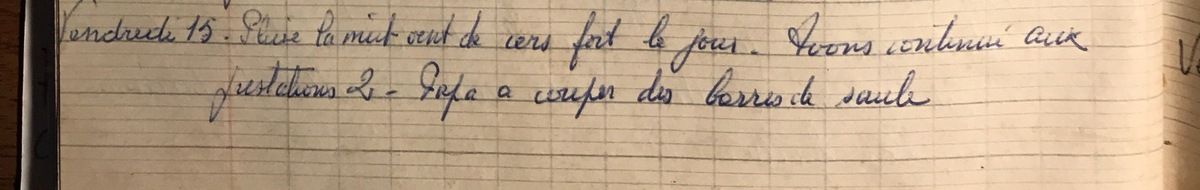 Vendredi 15. Pluie la nuit vent de cers fort le jour. Avons continué aux
prestations 2 - Papa a couper des barres de saule